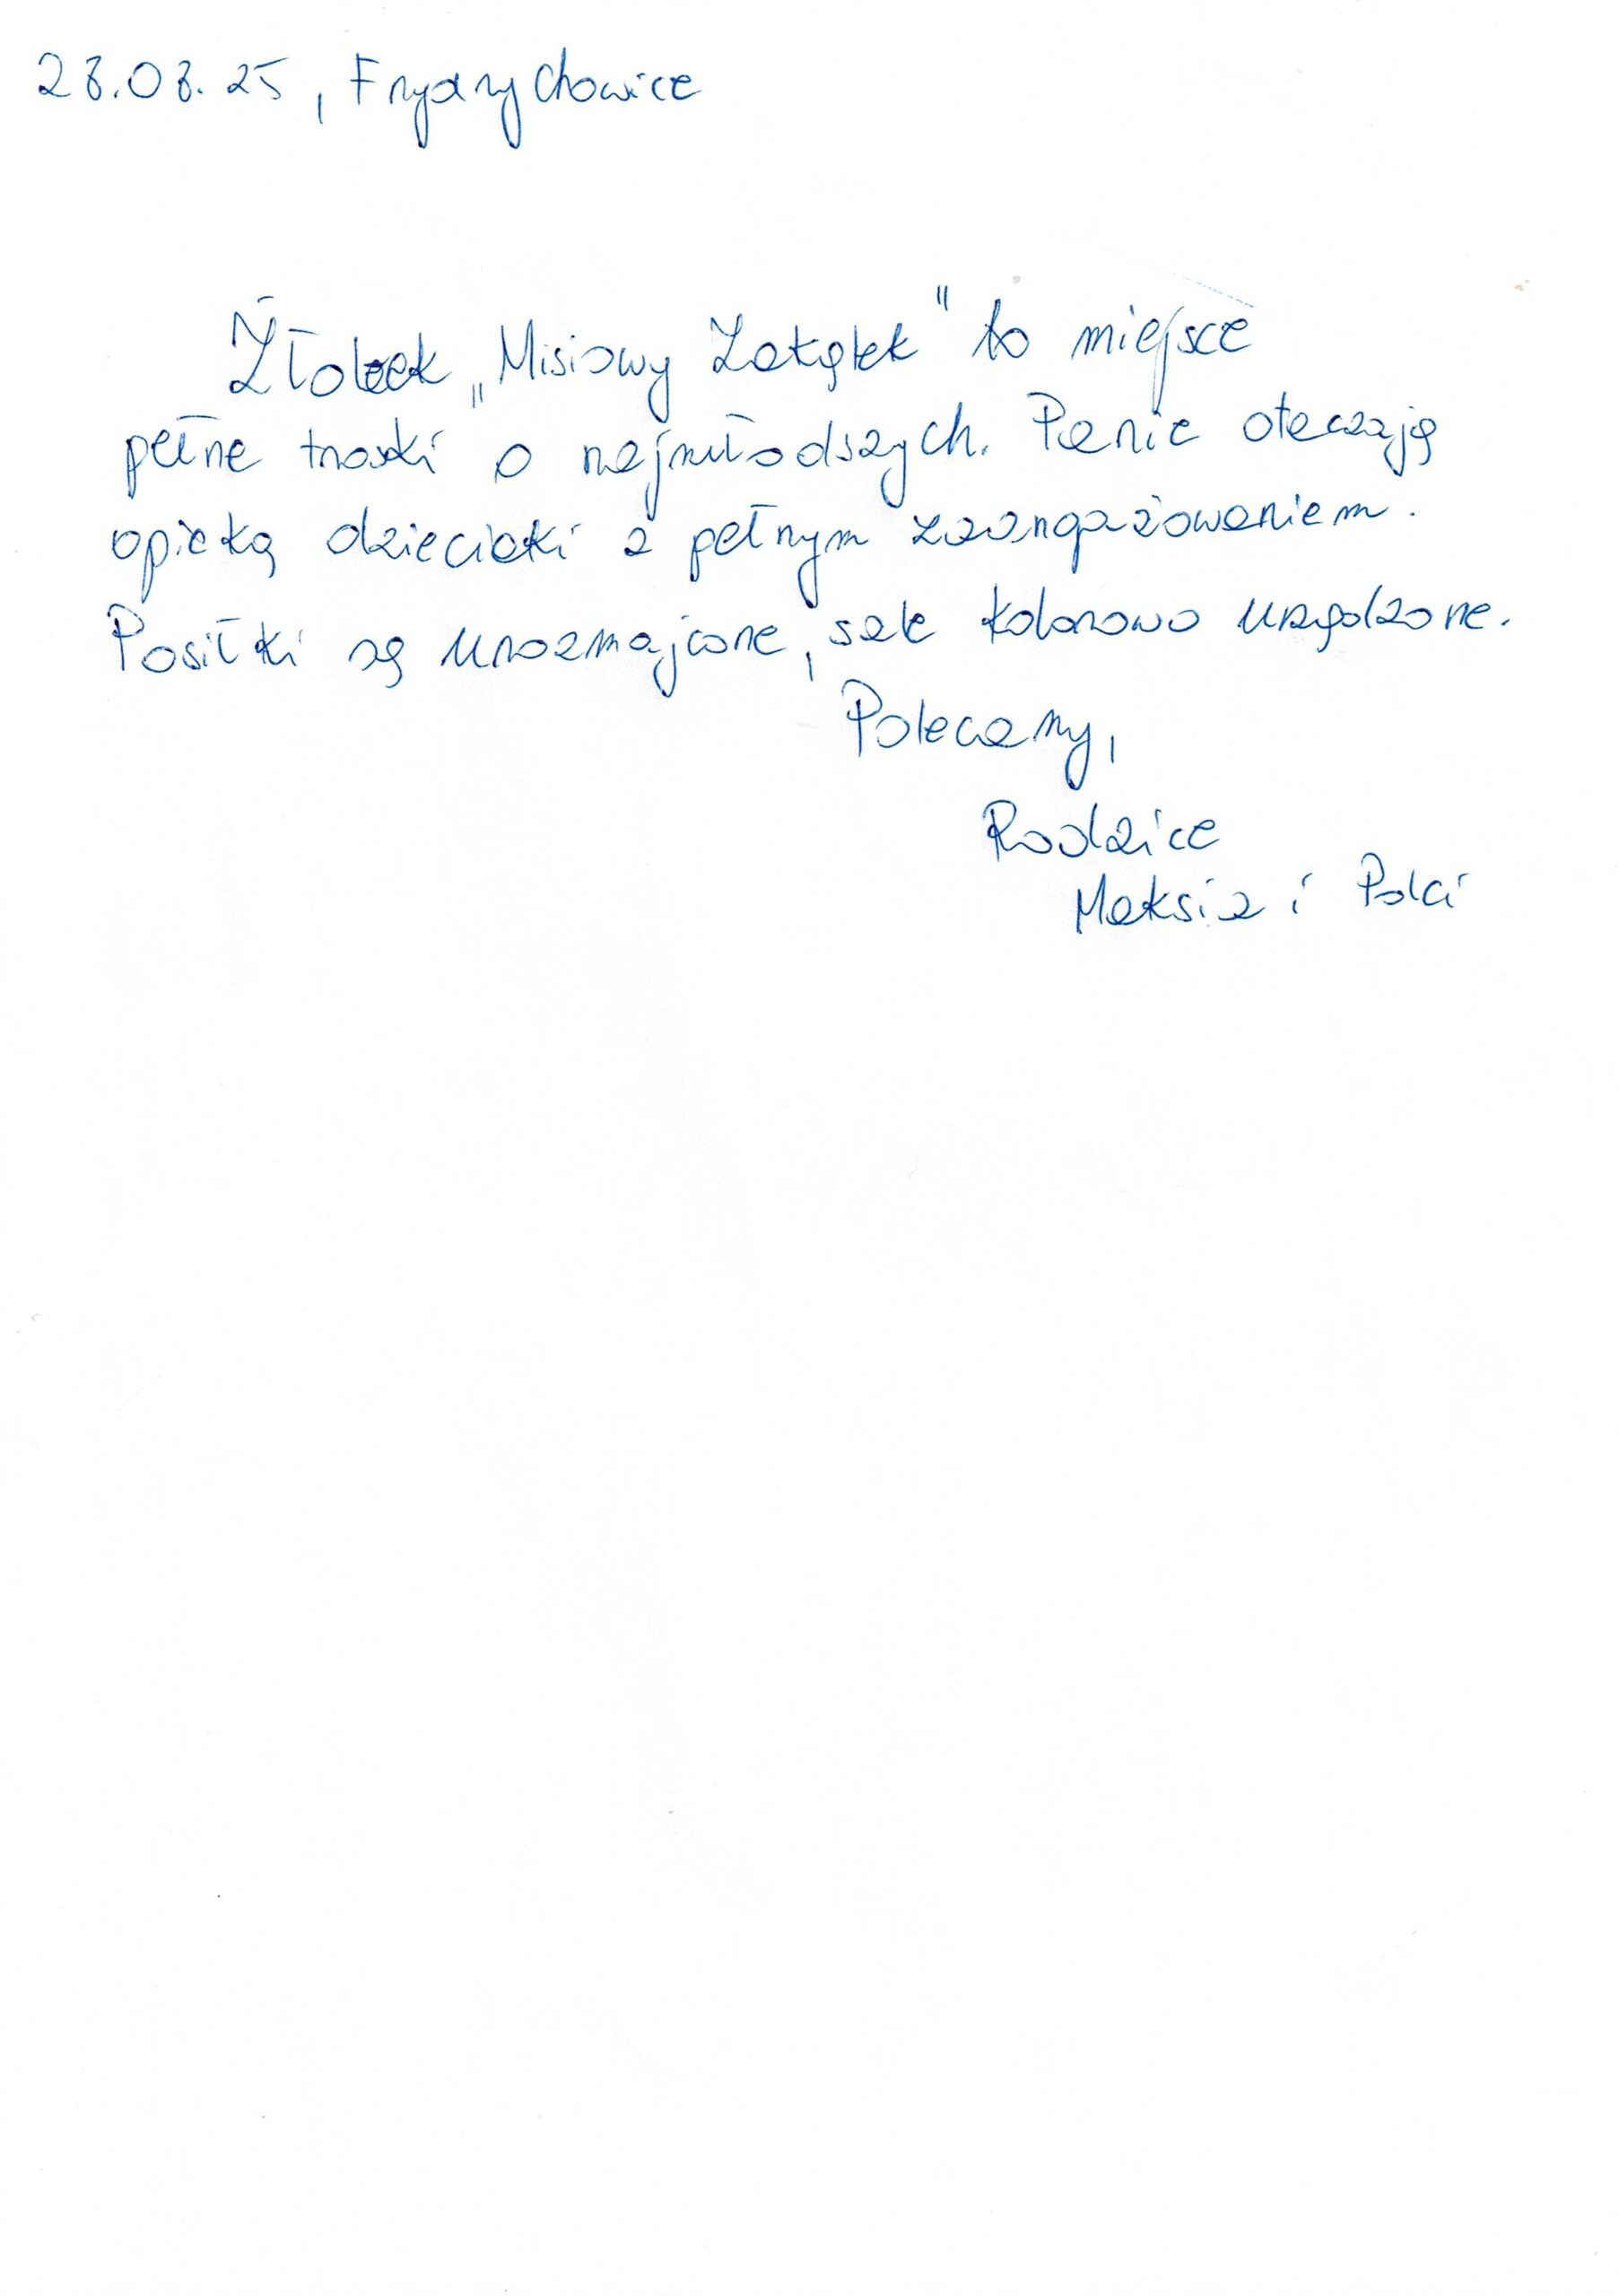 28.08.25, Frydrychowice
Żłobek „Misiowy Zakątek" to miejsce
pełne troski o najmłodszych. Panie otaczają
opieką dzieciaki z pełnym zaangażowaniem.
Posiłki są urozmajcone, sale kolorowo urządzone.
Polecamy,
Rodzice
Maksia i Polci